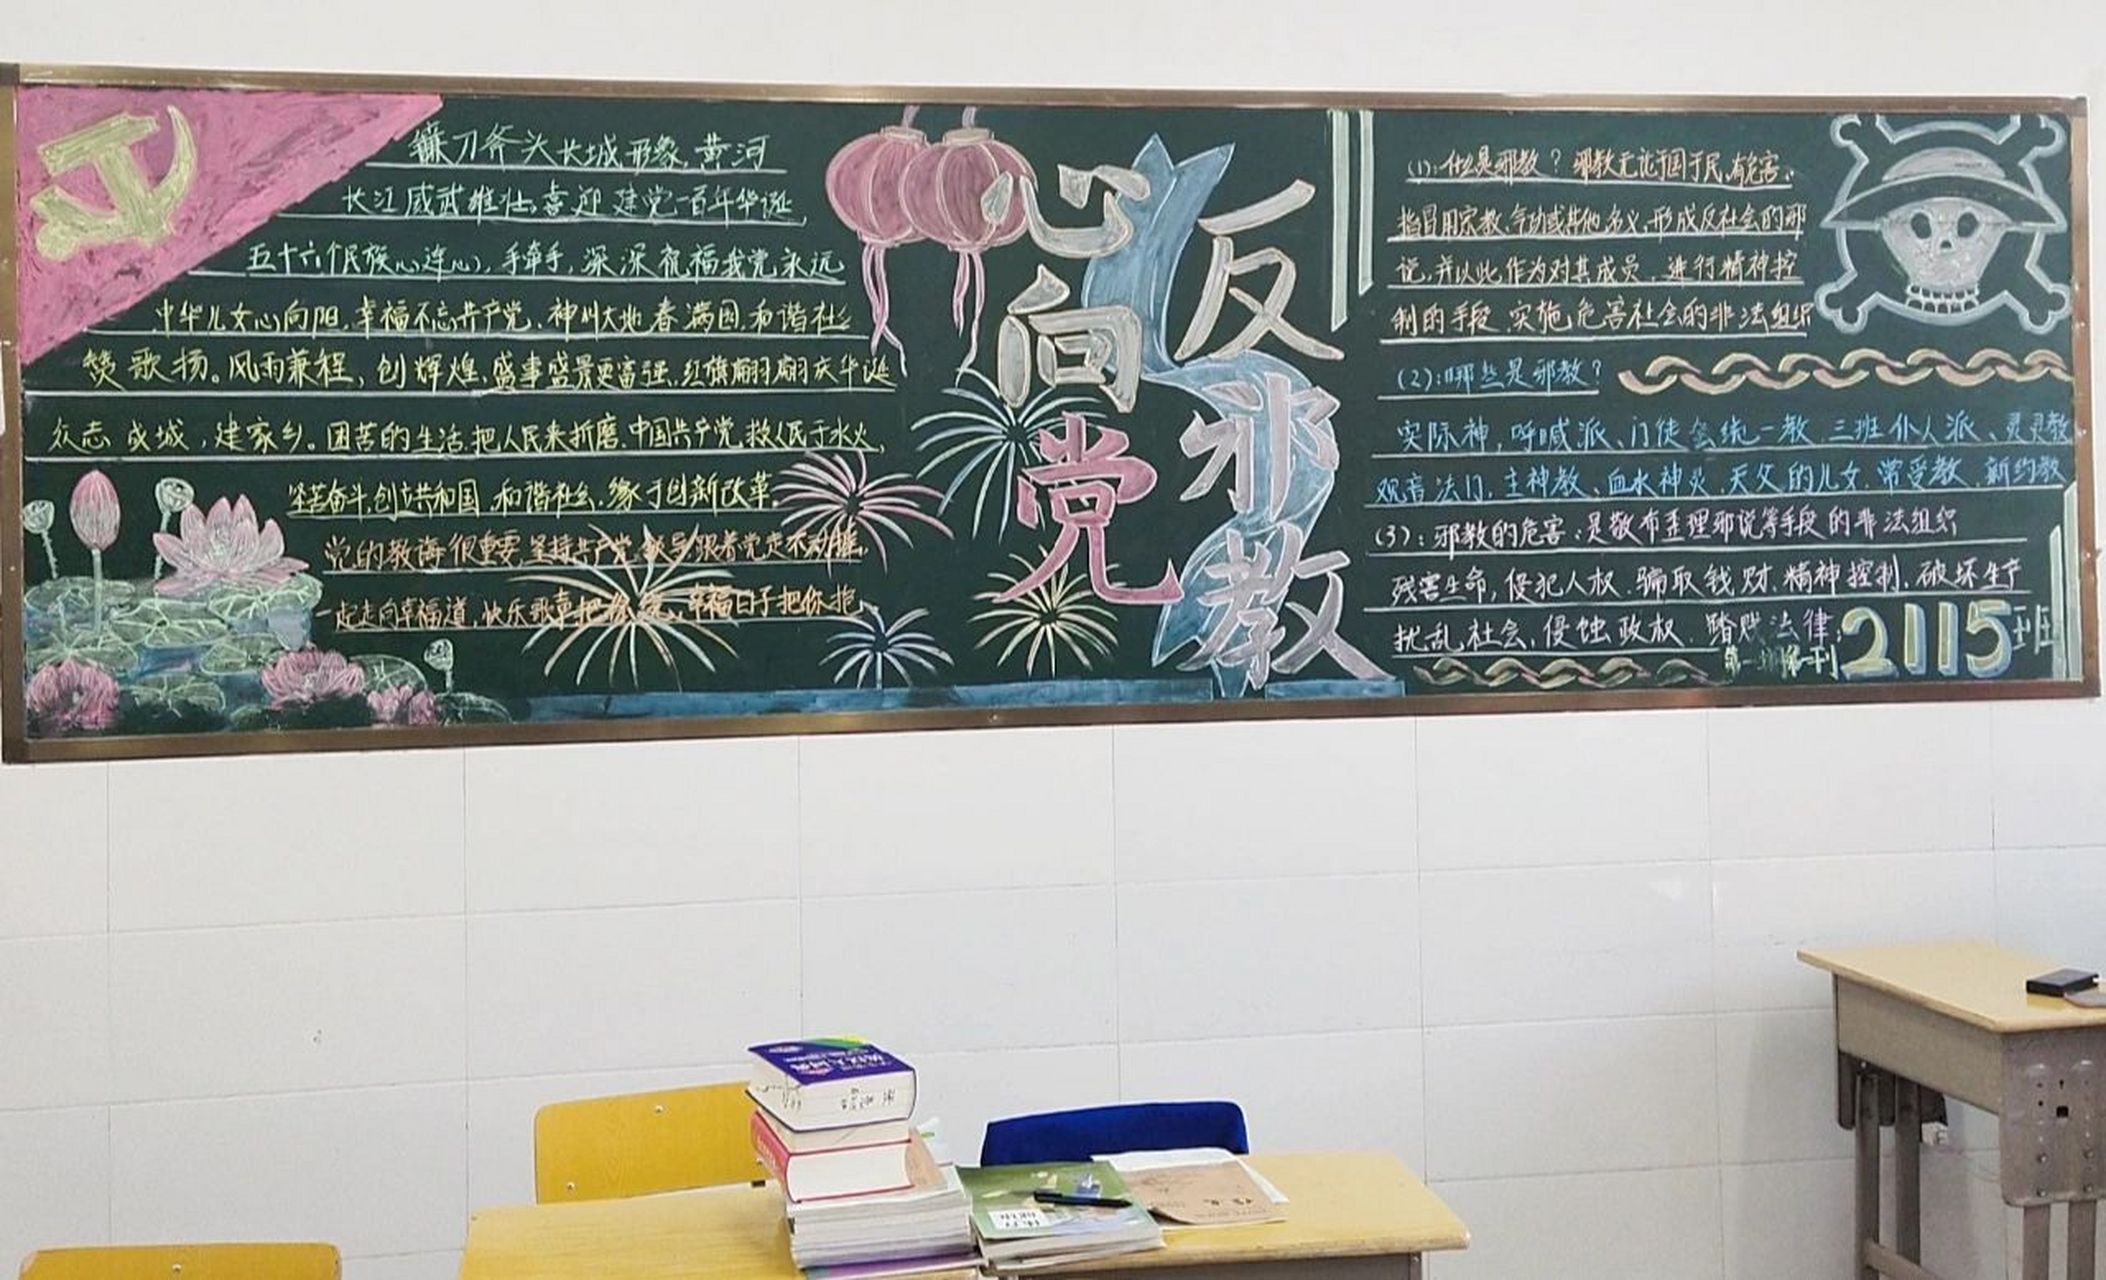 镰刀斧头长城形象,黄河
长江威武雄壮,喜迎建党一百年华诞
五十六个民族心连心,手牵手,深深祝福我党永远
中华儿女心向阳,幸福不忘共产党,神州大地春满园,和谐社
赞歌扬。风雨兼程,创辉煌,盛事盛景更富强,红旗翩翩庆华诞
众志成城,建家乡。困苦的生活把人民来折磨,中国共产党救人民于水火,
坚苦奋斗,创立共和国,和谐社会,缘于创新改革
党的教诲很重要,坚持共产党领导跟着党走不动摇,
一起走向幸福道,快乐歌声把你绕,幸福日子把你抱
心向党
反邪教
(1):什么是邪教?邪教无论于国于民,有危害,
指冒用宗教、气功或其他名义,形成反社会的邪
说,并以此作为对其成员,进行精神控
制的手段,实施危害社会的非法组织
(2):哪些是邪教?
实际神,呼喊派、门徒会统一教,三班仆人派、灵灵教
观音法门,主神教、血水神灵,天父的儿女,常受教,新约教
(3):邪教的危害:是散布歪理邪说等手段的非法组织
残害生命,侵犯人权,骗取钱财,精神控制,破坏生产
扰乱社会,侵蚀政权,踏贱法律;
2115班